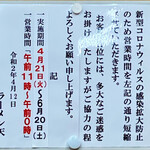 新型コロナウィルスの感染拡大防止
のため営業時間を左記の通り短縮
お客様各位には、多大なご迷惑を
お掛け たしますがご協力の程
よろしくお願い申し上げます。
記
一実施期間
4月21日(火)〜6月20日(土)
一営業時間
午前11時〜午前0時
令和2年4月1日
ラーメン天